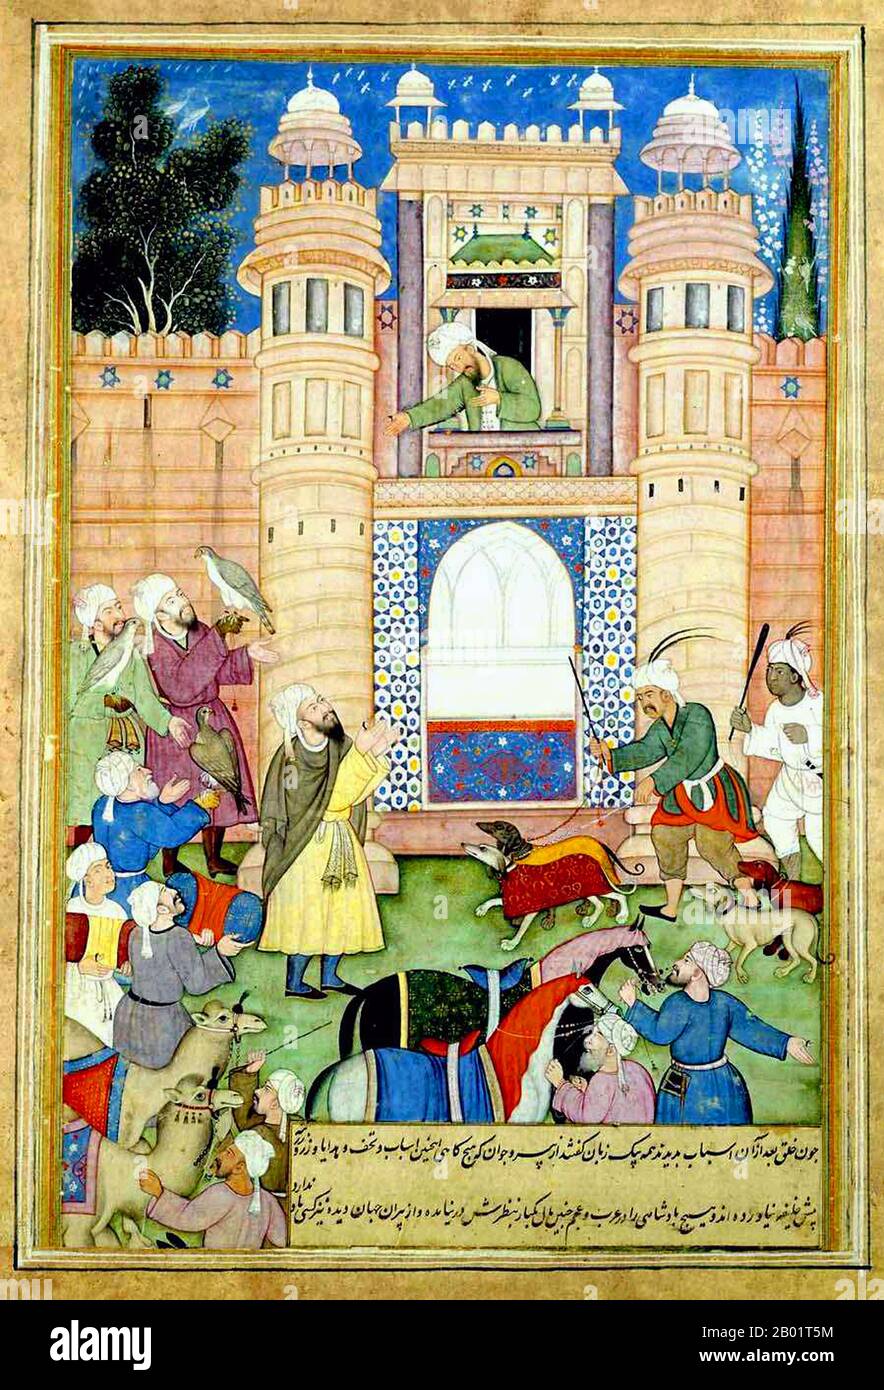 چون خلق بعد از آن اسباب بدیدند همه بیک زبان گفتند از پیر و جوان که هیچ کاهی اینچنین اسباب و تحف و هدایا و زر و
پیش خلیفه نیاورده اند و هیچ پادشاهی را در عرب و عجم چنین مال یکبار بنظرش در نیامده و از پیران جهان دیده نیز کسی یاد
ندارد
alamy
Image ID: 2B01T5M
www.alamy.com